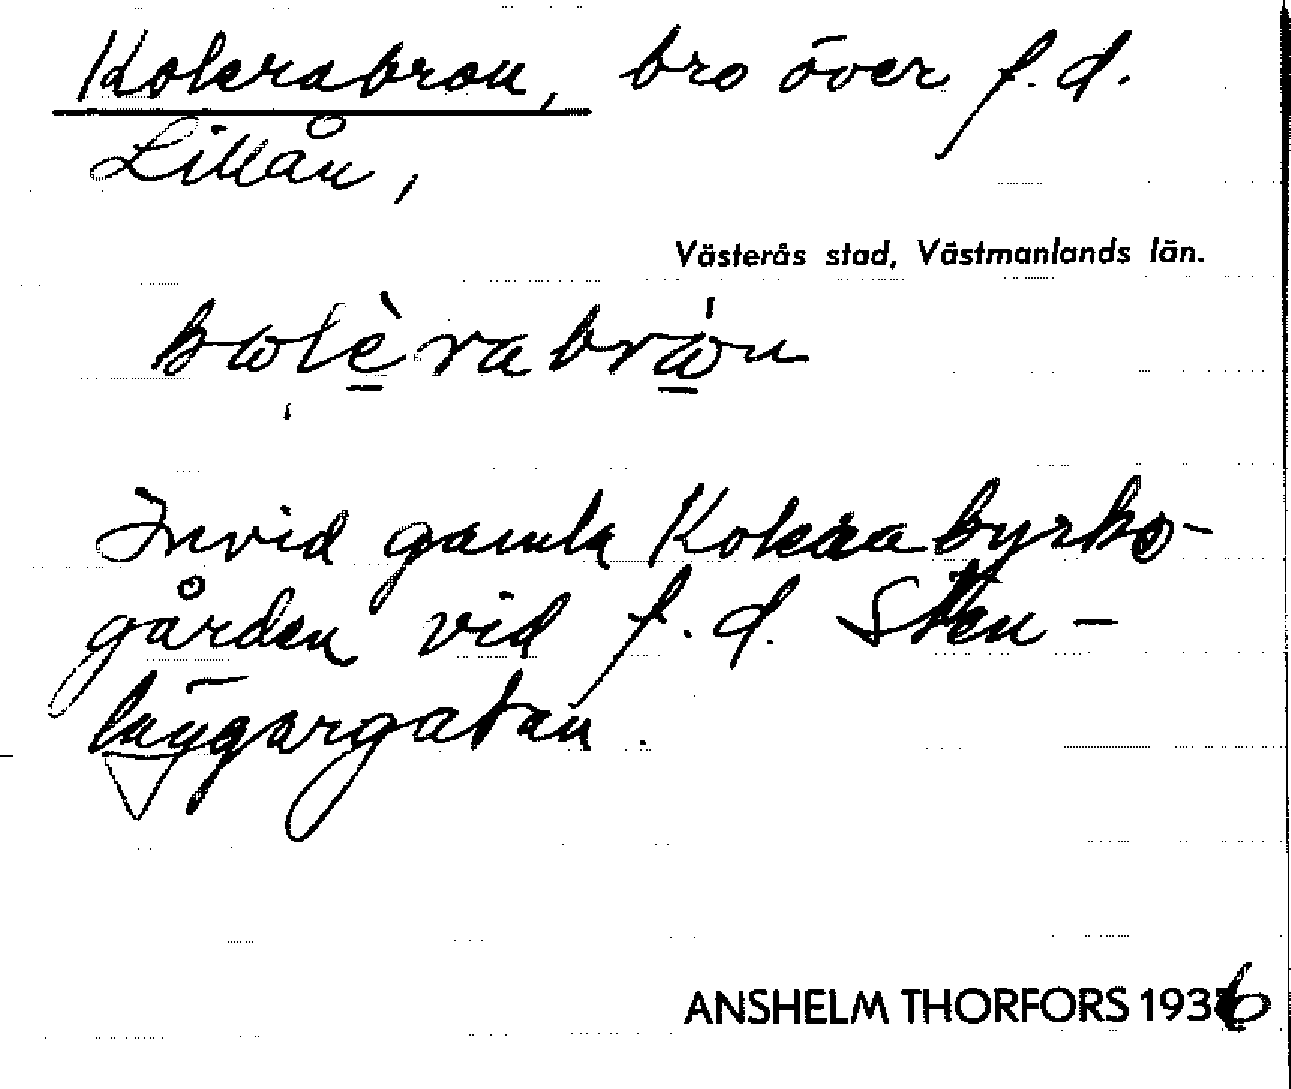 Kolerabron, bro över f.d.
Lillån,
Västerås stad, Västmanlands län.
kωlèrabrω̍n
Invid gamla Kolerakyrko-
gården vid f.d. Sten-
byg̅argatan.
ANSHELM THORFORS 1936